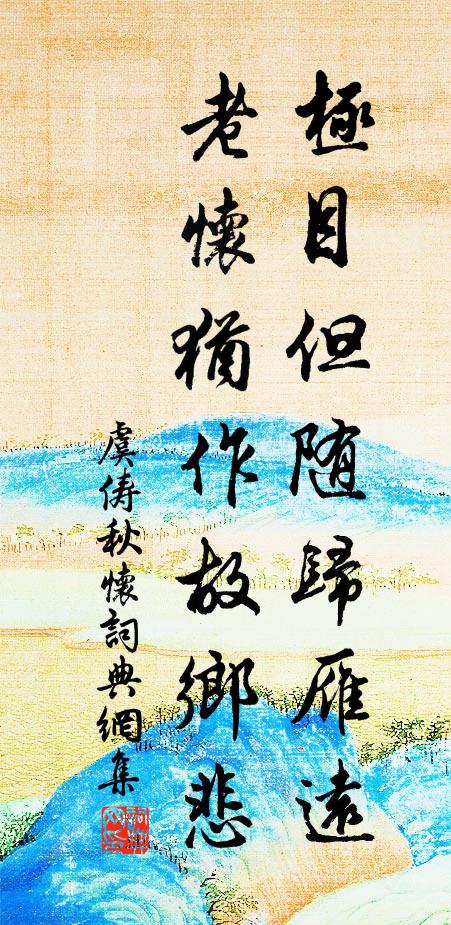 極目但随歸雁遠
老懷猶作故鄉悲
虞俦秋懷詞典網集